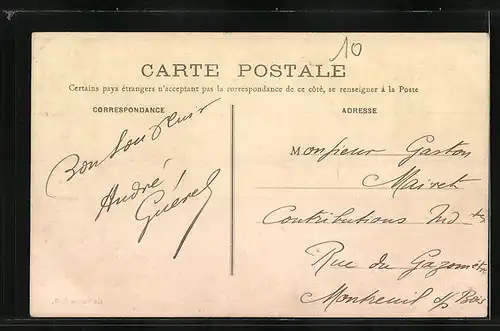 10
CARTE POSTALE
Certains pays étrangers n'acceptant pas la correspondance de ce côté, se renseigner à la Poste
CORRESPONDANCE
ADRESSE
Bon
André
Monsieur Gaston
Mairet
Contributions Ind tes
Rue du Gazomètre
Montreuil s/s Bois